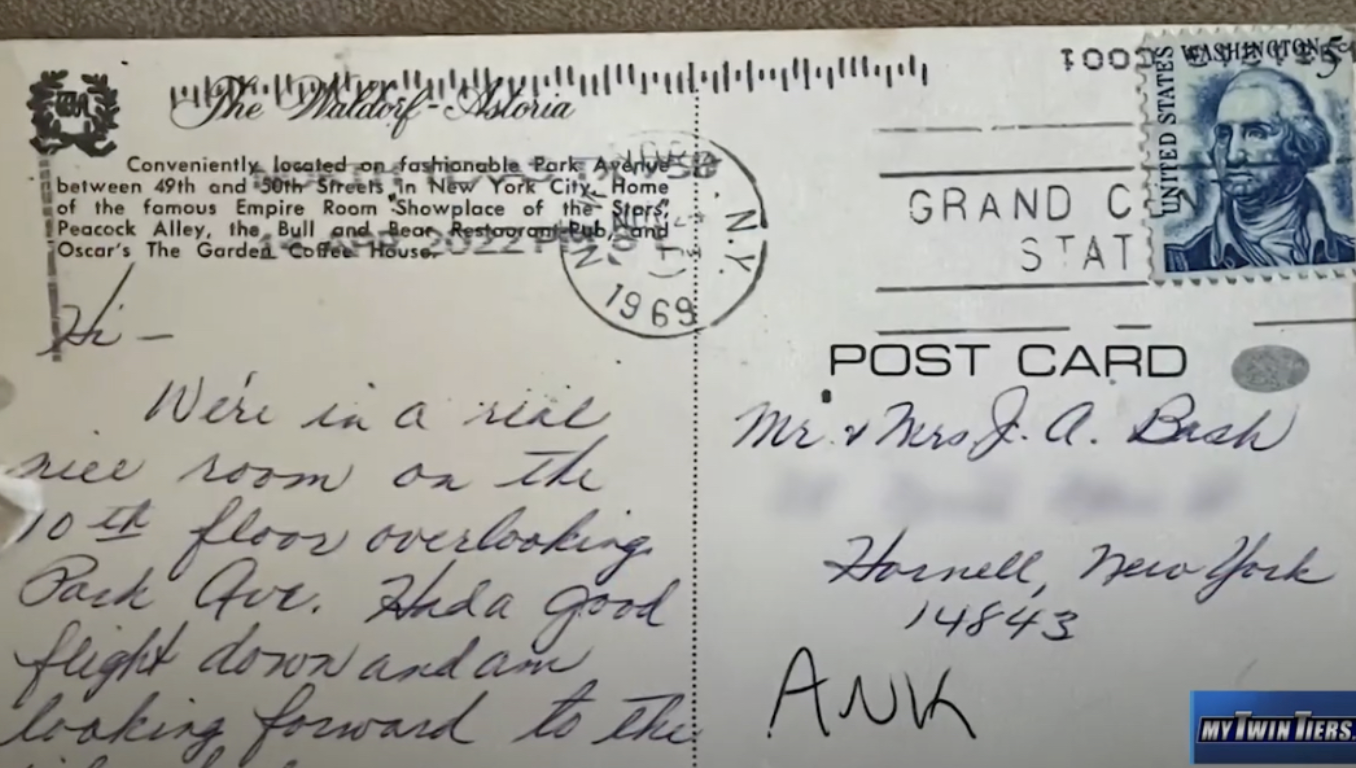 The Waldorf-Astoria
Conveniently located on fashionable Park Avenue
between 49th and 50th Streets in New York City. Home
of the famous Empire Room "Showplace of the Stars",
Peacock Alley, the Bull and Bear Restaurant-Pub, and
Oscar's The Garden Coffee House.
Hi -
We're in a real
nice room on the
10th floor overlooking
Park Ave. Had a good
flight down and am
looking forward to the
N.Y.
1969
2022 P
GRAND C
STAT
UNITED STATES
WASHINGTON
5
POST CARD
Mr. & Mrs J. A. Bash
Hornell, New York
14843
ANK
MYTWINTIERS.